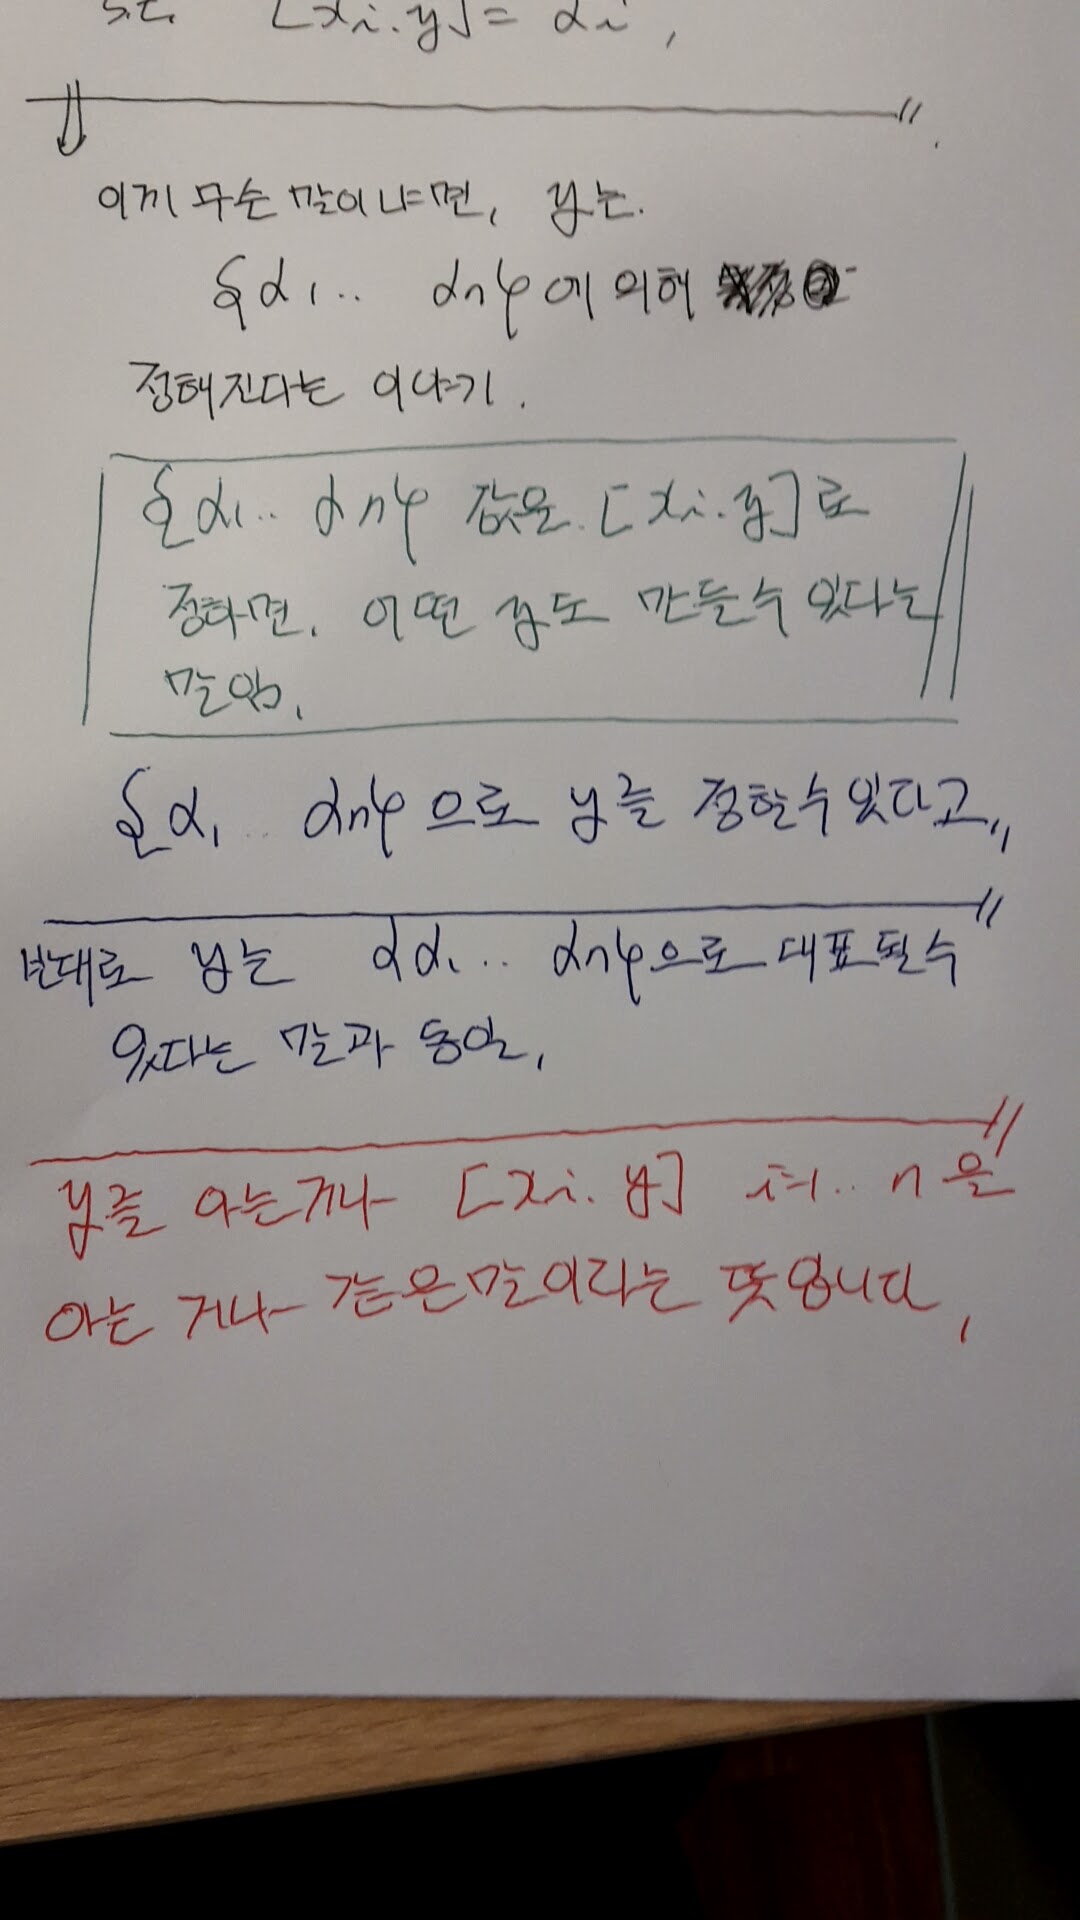 s.t. [xi.y] = αi,
이끼 무슨 말이냐면, y는.
{α1.. αn}에 의해
정해진다는 이야기.
{α1.. αn} 값을. [xi.y]로
정하면, 어떤 y도 만들수 있다는
말임,
{α1.. αn}으로 y를 정할수 있다고,,
반대로 y는 αα1... αn}으로 대표될수
있다는 말과 동일,
y를 아는거나 [xi.y] i=1.. n을
아는 거나 같은말이라는 뜻입니다,